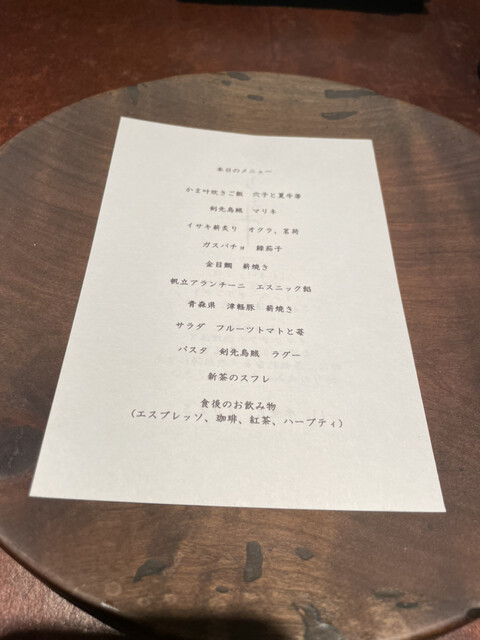 本日のメニュー
かまど炊きご飯　穴子と夏牛蒡
剣先烏賊　マリネ
イサキ薪炙り　オクラ、茗荷
ガスパチョ
金目鯛　薪焼き
帆立アランチーニ　エスニック餡
青森県　津軽豚　薪焼き
サラダ　フルーツトマトと苺
パスタ　剣先烏賊　ラグー
新茶のスフレ
食後のお飲み物
（エスプレッソ、珈琲、紅茶、ハーブティ）